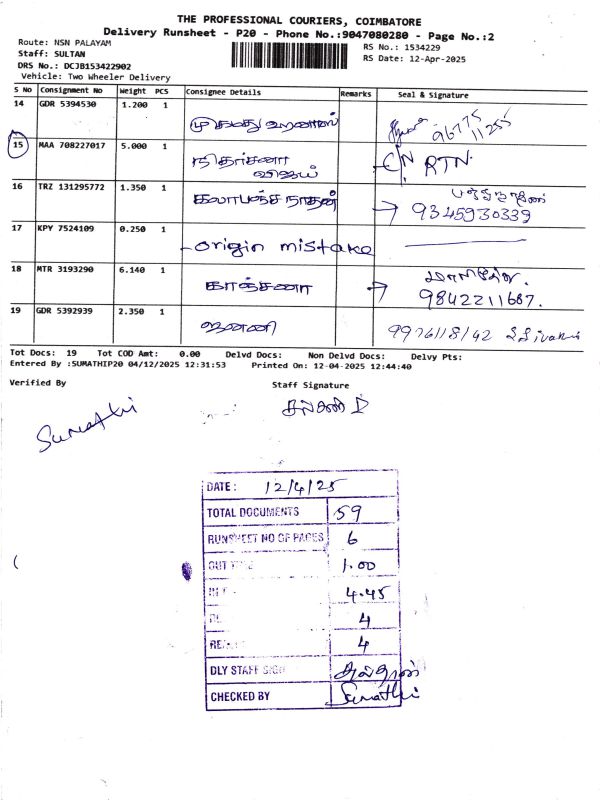 THE PROFESSIONAL COURIERS, COIMBATORE
Delivery Runsheet - P20 - Phone No.:9047080280 - Page No.:2
Route: NSN PALAYAM
RS No.: 1534229
Staff: SULTAN
RS Date: 12-Apr-2025
DRS No.: DCJB153422902
Vehicle: Two Wheeler Delivery
S No Consignment No Weight PCS Consignee Details Remarks Seal & Signature
14 GDR 5394530 1.200 1
96775 11255
15 MAA 708227017 5.000 1 நிதர்சனா விஜய் C/N RTN.
16 TRZ 131295772 1.350 1
9345930339
17 KPY 7524109 0.250 1 origin mistake
18 MTR 3193290 6.140 1 காஞ்சனா
9842211687.
19 GDR 5392939 2.350 1 ஜனனி
Tot Docs: 19 Tot COD Amt: 0.00 Delvd Docs: Non Delvd Docs: Delvy Pts:
Entered By :SUMATHIP20 04/12/2025 12:31:53 Printed On: 12-04-2025 12:44:40
Verified By Staff Signature
Sumathi
DATE: 12/4/25
TOTAL DOCUMENTS 59
RUNSHEET NO OF PAGES 6
OUT 1.00
4.45
4
4
DLY STAFF SIGN
CHECKED BY Sumathi